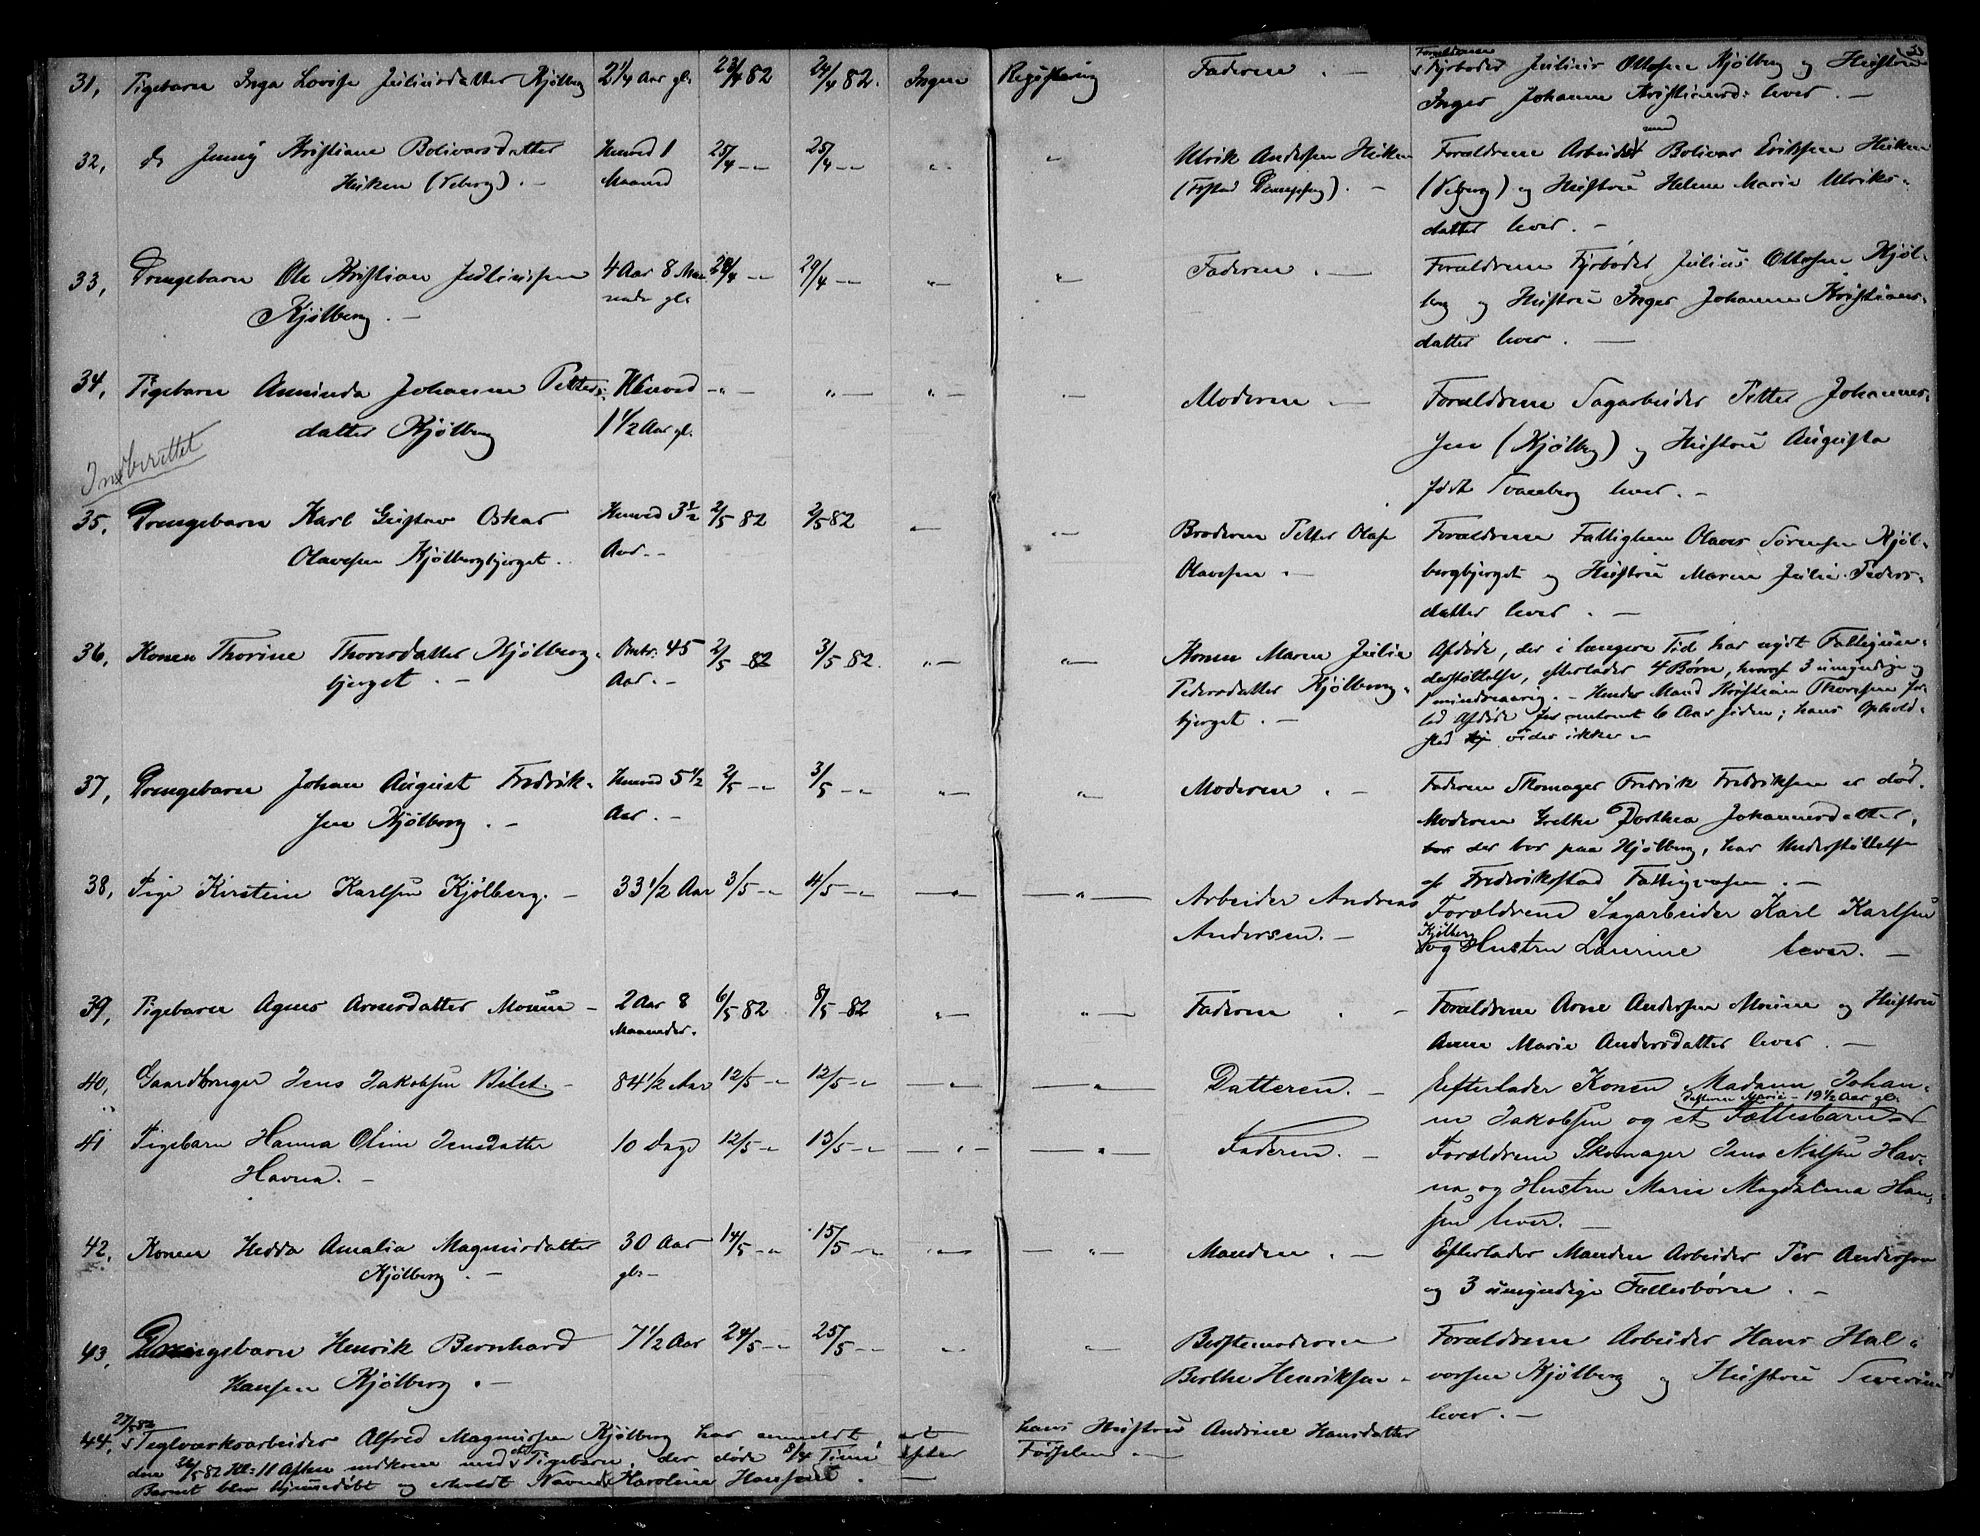 31, Pigebarn Inga Lovise Juliusdatter Kjølberg 2 1/4 Aar gl. 23/4 82 24/4 82. Ingen Registering Faderen . — Forældrene Fyrbøder Julius Ottosen Kjølberg og Hustru
Inger Johanne Kristiansd: lever . —
32, do Jenny Kristiane Bolivarsdatter Henved 1 25/4 -"- 25/4 -"- " " Ulrik Andersen Huken Forældrene Arbeidsmand Bolivar Eriksen Huken
Huken (Veberg) . — Maaned (Ystad Præmpeg) . — (Veberg) og Hustru Helene Marie Ulriks-
datter lever . —
33, Drengebarn Ole Kristian Juliussen 4 Aar 8 Maa- 28/4 -"- 29/4 -"- " " Faderen . — Forældrene Fyrbøder Julius Ottosen Kjøl-
Kjølberg . — neder gl. berg og Hustru Inger Johanne Kristians-
datter lever . —
34, Pigebarn Aminda Johanne Petters- Henved -"- " " " Moderen . — Forældrene Sagarbeider Petter Johannes-
datter Kjølberg 1 1/2 Aar gl. sen (Kjølberg) og Hustru Augusta
født Svaneberg lever . —
Indberettet
35, Drengebarn Karl Gustav Oskar Henved 3 1/2 2/5 82 2/5 82 " " Broderen Petter Olaf Forældrene Fattiglem Olaves Sørensen Kjøl-
Olavesen Kjølbergbjerget . Aar . — Olavesen . — bergbjerget og Hustru Maren Julie Peders-
datter lever . —
36, Konen Thorine Thoresdatter Kjølberg- Omtr. 45 2/5 -82 3/5 82. " " Konen Maren Julie Afdøde, der i længere Tid har nydt Fattigun-
bjerget . — Aar . — Pedersdatter Kjølberg- derstøttelse, efterlader 4 Børn, hvoraf 3 umyndige og
bjerget . — 1 mindreaarig . — Hendes Mand Kristian Thoresen for-
lod Afdøde for omtrent 6 Aar siden; hans Ophold-
sted vides ikke . —
37, Drengebarn Johan August Fredrik- Henved 5 1/2 2/5 -"- 3/5 -"- " " Moderen . — Faderen Skomager Fredrik Fredriksen er død.
sen Kjølberg . — Aar . — Moderen Grethe Dorthea Johannesdatter,
der bor paa Kjølberg, har Understøttelse
af Frederikstad Fattigvæsen . —
38, Pige Kirstine Karlsen Kjølberg. — 33 1/2 Aar 3/5 -"- 4/5 -"- " " Arbeider Andreas Forældrene Sagarbeider Karl Karlsen
Andersen. — Kjølberg og Hustru Laurine lever. —
39, Pigebarn Agnes Arnesdatter Moum — 2 Aar 8 6/5 82 8/5 -82 " " Faderen . — Forældrene Arne Andersen Moum og Hustru
Maaneder . Anne Marie Andersdatter lever . —
40, Gaardbruger Jens Jakobsen Bilet. — 84 1/2 Aar 12/5 -"- 12/5 -"- " " Datteren. — Efterlader Konen Madam Johan-
ne Jakobsen og et Fællesbarn Datteren Marie - 19 1/2 Aar gl.
41 Pigebarn Hanna Oline Jensdatter 10 Dage 12/5 -"- 13/5 -"- " " Faderen. — Forældrene Skomager Jens Nilsen Hav-
Havna. — na og Hustru Marie Magdalena Han-
sen lever. —
42, Konen Hedda Amalia Magnusdatter 30 Aar 14/5 -"- 15/5 -"- " " Manden . — Efterlader Manden Arbeider Per Andersson
Kjølberg . — gl. og 3 umyndige Fællesbørn . —
43, Drengebarn Henrik Bernhard 7 1/2 Aar 24/5 -"- 25/5 -"- " " Bestemoderen Forældrene Arbeider Hans Hal-
Hansen Kjølberg . — Berthe Henriksen . vorsen Kjølberg og Hustru Severine
lever . —
27/5 82
44, Teglværksarbeider Alfred Magnussen Kjølberg har anmeldt at hans Hustru Andrine Hansdatter
den 26/5 82 Kl: 11 Aften nedkom med et Pigebarn, der døde 3/4 Time efter Fødselen . —
Barnet blev hjemmedøbt og erholdt Navnet Karoline . —